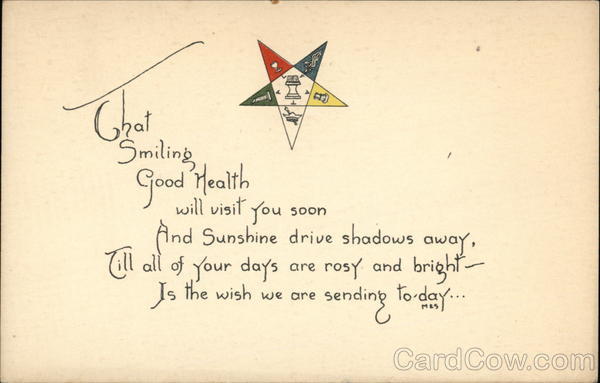 That
Smiling
Good Health
will visit you soon
And Sunshine drive shadows away,
Till all of your days are rosy and bright—
Is the wish we are sending to-day...
MES
CardCow.com